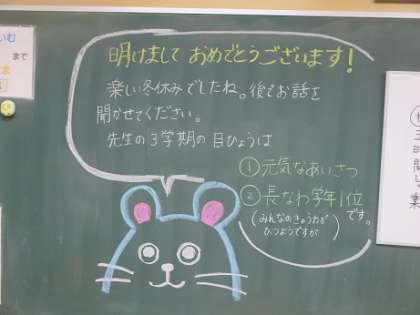 明けまして おめでとうございます!
楽しい冬休みでしたね。後でお話を
聞かせてください。
先生の3学期の目ひょうは
①元気なあいさつ
②長なわ学年1位
(みんなのきょうりょくが
ひつようですが)です。
いむ
まで